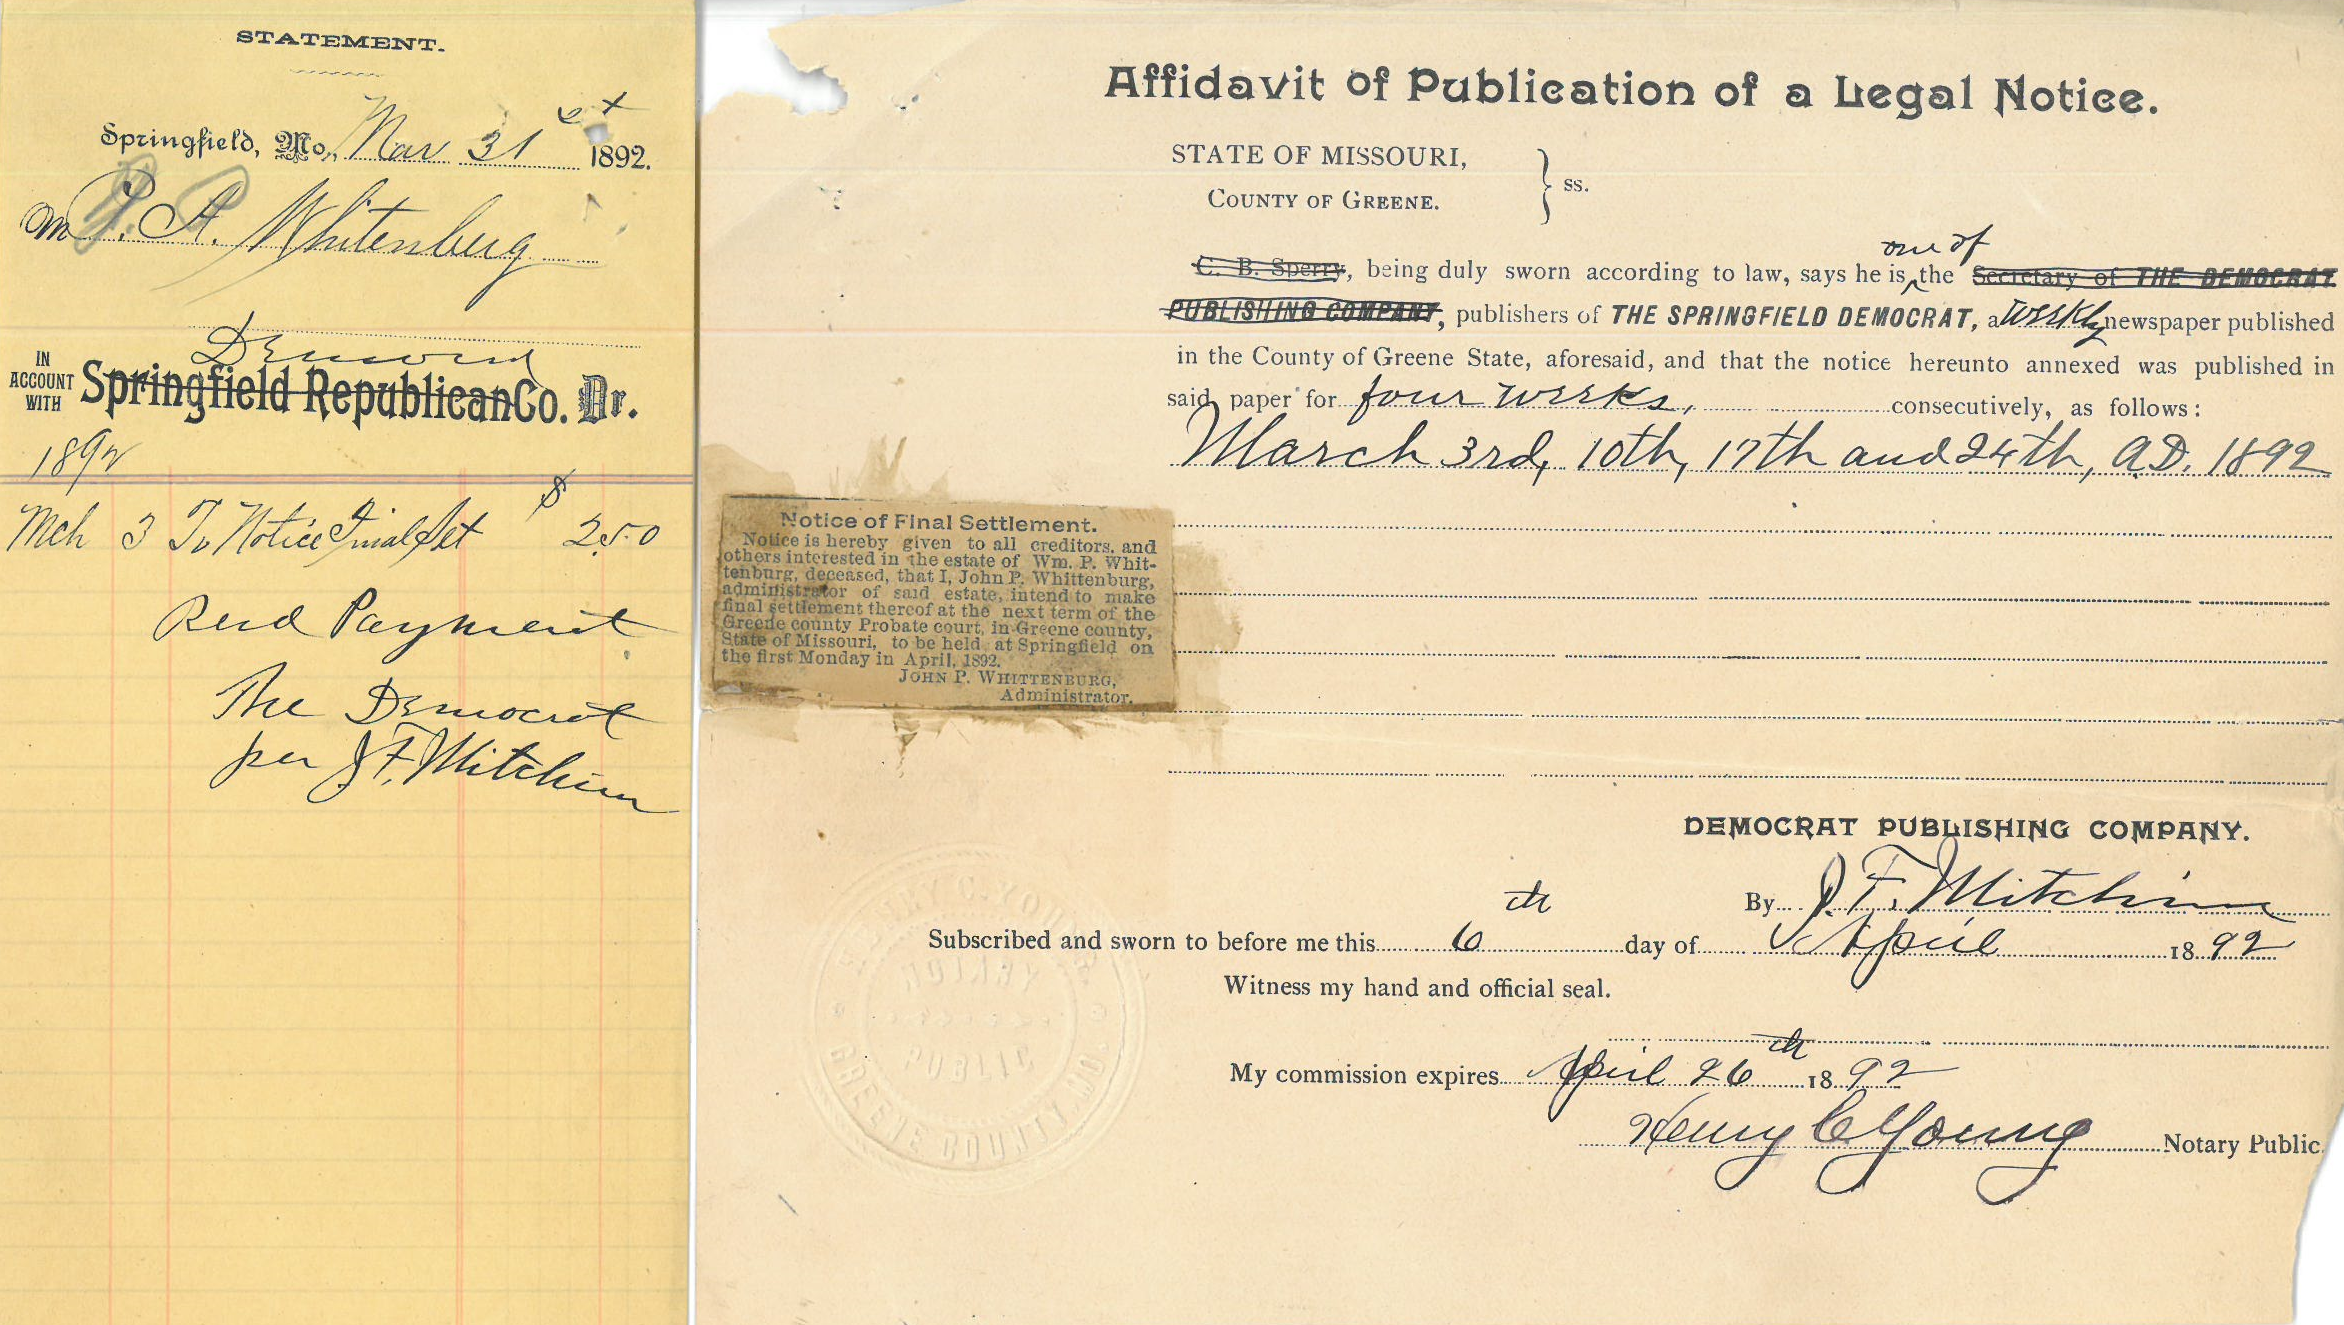 STATEMENT.
Springfield, Mo., Mar 31st 1892.
M P. A. Whitenberg
Democrat
IN ACCOUNT WITH Springfield Republican Co. Dr.
1892
$
Mch 3 To Notice Final Set 2.50
Recd Payment
The Democrat
per J. F. Mitchim
Affidavit of Publication of a Legal Notice.
STATE OF MISSOURI,
COUNTY OF GREENE. } ss.
one of
C. B. Sperry, being duly sworn according to law, says he is ^ the Secretary of THE DEMOCRAT
PUBLISHING COMPANY, publishers of THE SPRINGFIELD DEMOCRAT, a Weekly newspaper published
in the County of Greene State, aforesaid, and that the notice hereunto annexed was published in
said paper for four weeks, consecutively, as follows:
March 3rd, 10th, 17th and 24th, A.D. 1892
Notice of Final Settlement.
Notice is hereby given to all creditors, and
others interested in the estate of Wm. P. Whit-
tenburg, deceased, that I, John P. Whittenburg,
administrator of said estate, intend to make
final settlement thereof at the next term of the
Greene county Probate court, in Greene county,
State of Missouri, to be held at Springfield on
the first Monday in April, 1892.
JOHN P. WHITTENBURG,
Administrator.
DEMOCRAT PUBLISHING COMPANY.
By J. F. Mitchim
Subscribed and sworn to before me this 6th day of April 1892
Witness my hand and official seal.
My commission expires April 26th 1892
Henry C Young Notary Public.
HENRY C. YOUNG
NOTARY
PUBLIC
GREENE COUNTY, MO.